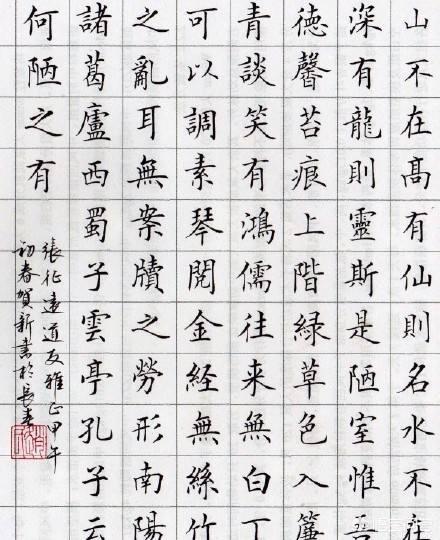 山不在髙有仙則名水不在
深有龍則靈斯是陋室惟吾
徳馨苔痕上階緑草色入簾
青談笑有鴻儒往来無白丁
可以調素琴閱金経無絲竹
之亂耳無案牘之勞形南陽
諸葛廬西蜀子雲亭孔子云
何陋之有
張征遠道友雅正甲午
初春賀新書於長春